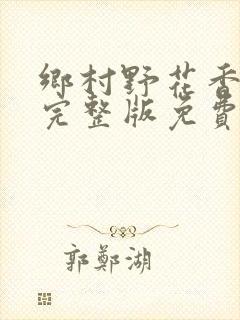 鄉村野花香
完整版免費
郭鄭湖